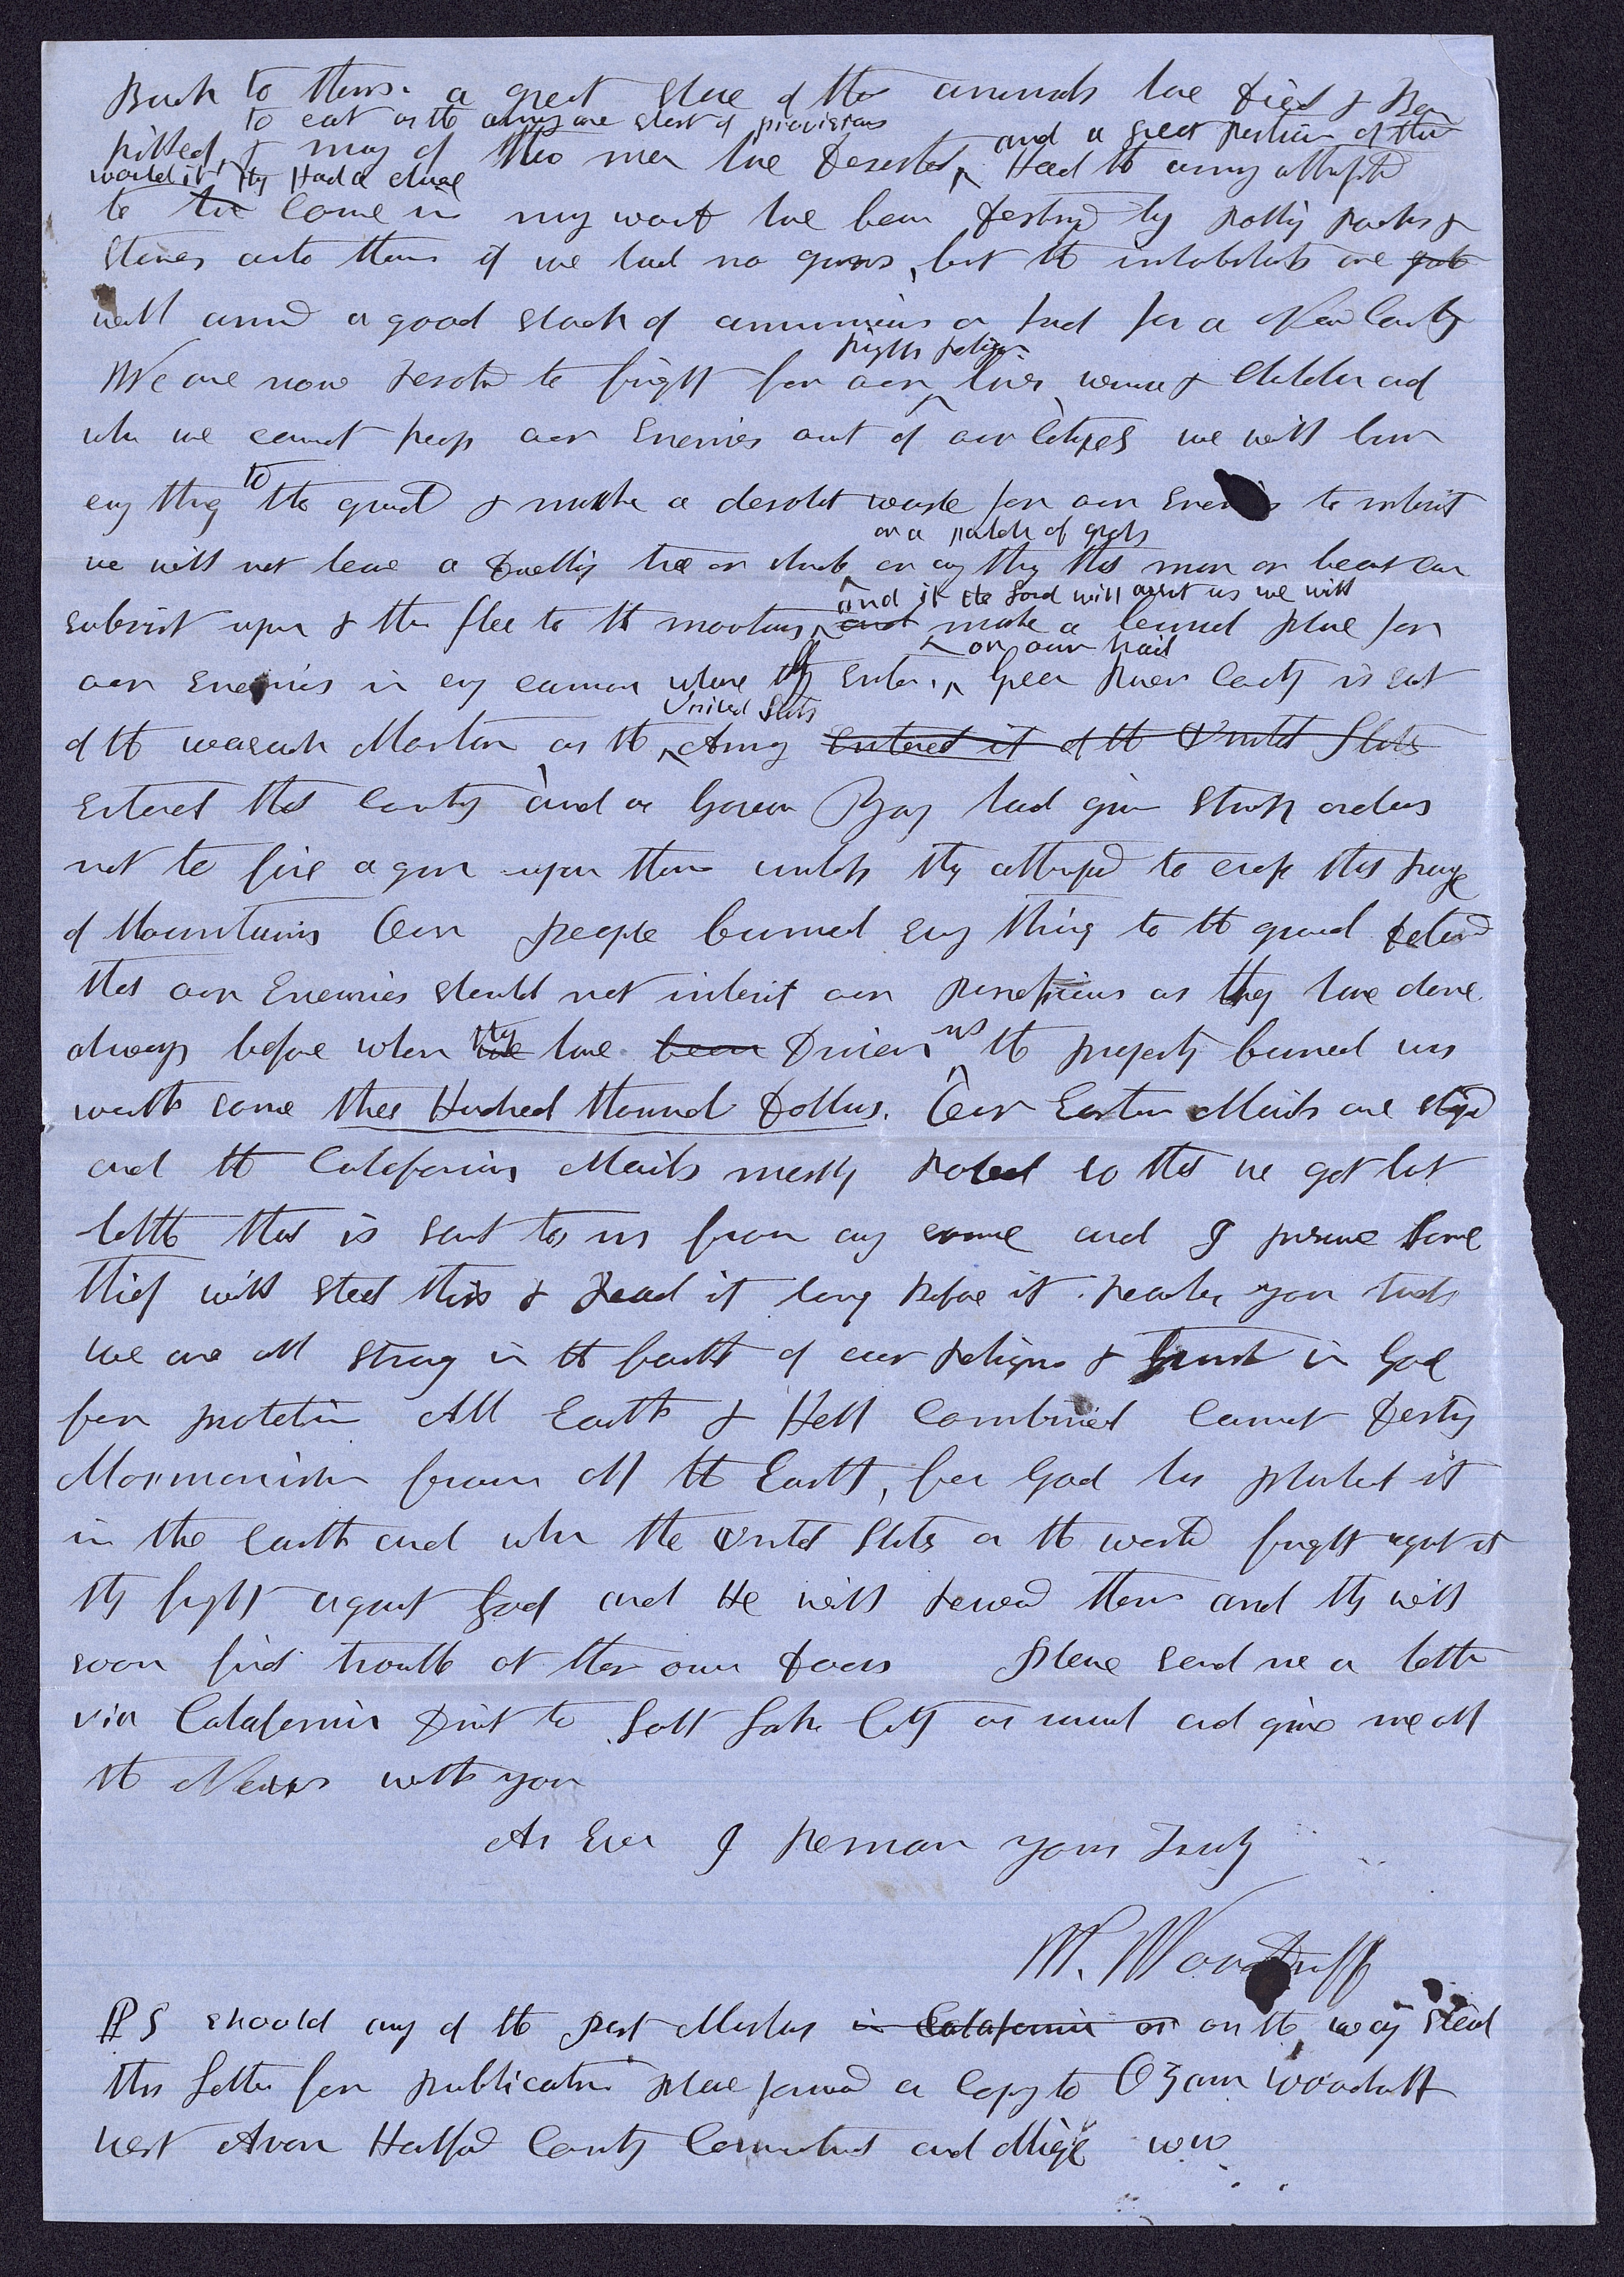 Back to them. a great share of the animals have died & Been
to eat as the army are short of provisions
killed, & many of the men have deserted, and a great portion of them
would if they Had a chance Had the army attempted
to come in many would have been destroyed by rolling rocks &
stones onto them if we had no guns, but the inhabitants are
well armed a good stock of ammunition as found for a New County
rights religion
We are now resolved to fight for our lives, women & Children and
when we cannot keep our Enemies out of our Cityes we will burn
evry thing to the ground & make a desolat waste for our Enemies to inherit
or a patch of grass
we will not leave a dwelling tree or shrub or any thing that man or beast can
and if the Lord will assist us we will
subsist upon & then flee to the mountains and make a burried place for
on our trail
our Enemies in evry cannon where they Enter. Green River County is East
United States
of the wasatch Mountain as the Army Entered it of the United States
Entered that County and as Govornor Young had given strict orders
not to fire a gun upon them unless they attempted to cross this range
of Mountains Our people burned evry thing to the ground determined
that our Enemies should not inherit our possessions as they have done
always before when they have been Driven us the property burned was
worth some three Hundred thousand Dollars. Our Eastern Mails are stoped
and the Calafornia Mails mostly robed so that we get but
little that is sent to us from any source and I presume some
thief will steal this & read it long before it reaches your hands
we are all strong in the faith of our religion & trust in God
for protection All Earth & Hell Combined Cannot Destroy
Mormonism from off the Earth, for God has planted it
in the Earth and when the United States or the world fight against it
they fight against God and He will reward them and they will
soon find trouble at their own doors Please send me a letter
via Calafornia Direct to Salt Lake City as usual and give me all
the News with you
As Ever I Remain yours Truly
W. Woodruff
PS should any of the post Masters in Calafornia or on the way steal
this Letter for publication please forward a Copy to Ozem Woodruff
West Avon Hartford County Connecticut and oblige WW